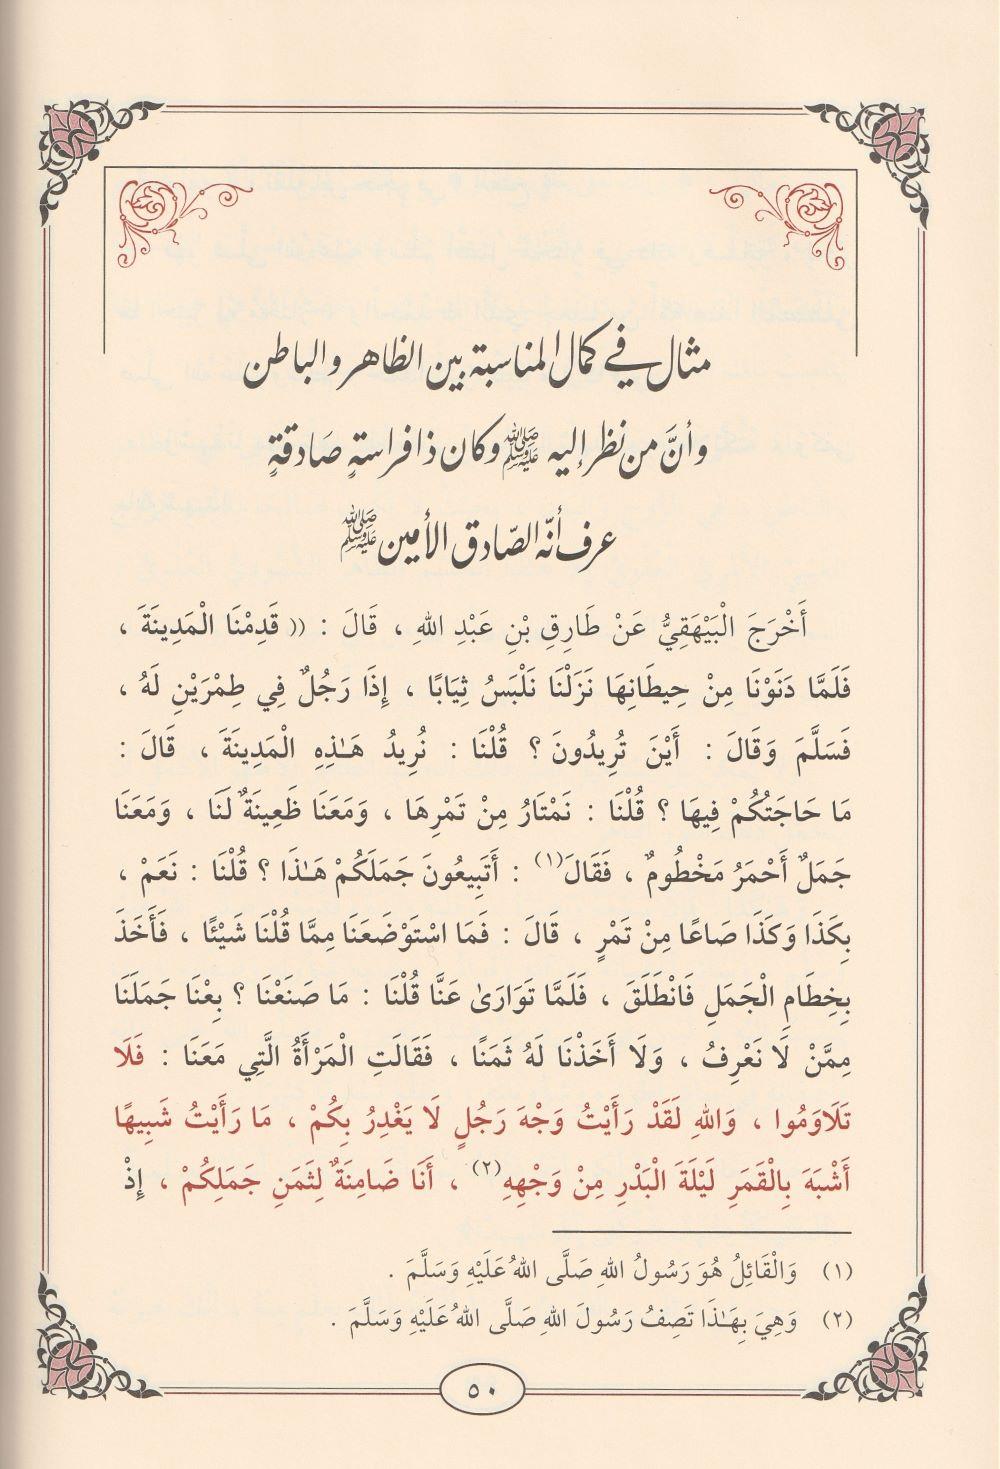 مثال في كمال المناسبة بين الظاهر والباطن
وأنَّ من نظر إليه ﷺ وكان ذا فراسةٍ صَادقةٍ
عرف أنّه الصّادق الأمين ﷺ
أَخْرَجَ الْبَيْهَقِيُّ عَنْ طَارِقِ بْنِ عَبْدِ اللهِ ، قَالَ : (( قَدِمْنَا الْمَدِينَةَ ،
فَلَمَّا دَنَوْنَا مِنْ حِيطَانِهَا نَزَلْنَا نَلْبَسُ ثِيَابًا ، إِذَا رَجُلٌ فِي طِمْرَيْنِ لَهُ ،
فَسَلَّمَ وَقَالَ : أَيْنَ تُرِيدُونَ ؟ قُلْنَا : نُرِيدُ هَـٰذِهِ الْمَدِينَةَ ، قَالَ :
مَا حَاجَتُكُمْ فِيهَا ؟ قُلْنَا : نَمْتَارُ مِنْ تَمْرِهَا ، وَمَعَنَا ظَعِينَةٌ لَنَا ، وَمَعَنَا
جَمَلٌ أَحْمَرُ مَخْطُومٌ ، فَقَالَ(١) : أَتَبِيعُونَ جَمَلَكُمْ هَـٰذَا ؟ قُلْنَا : نَعَمْ ،
بِكَذَا وَكَذَا صَاعًا مِنْ تَمْرٍ ، قَالَ : فَمَا اسْتَوْضَعَنَا مِمَّا قُلْنَا شَيْئًا ، فَأَخَذَ
بِخِطَامِ الْجَمَلِ فَانْطَلَقَ ، فَلَمَّا تَوَارَىٰ عَنَّا قُلْنَا : مَا صَنَعْنَا ؟ بِعْنَا جَمَلَنَا
مِمَّنْ لَا نَعْرِفُ ، وَلَا أَخَذْنَا لَهُ ثَمَنًا ، فَقَالَتِ الْمَرْأَةُ الَّتِي مَعَنَا : فَلَا
تَلَاوَمُوا ، وَاللهِ لَقَدْ رَأَيْتُ وَجْهَ رَجُلٍ لَا يَغْدِرُ بِكُمْ ، مَا رَأَيْتُ شَبِيهًا
أَشْبَهَ بِالْقَمَرِ لَيْلَةَ الْبَدْرِ مِنْ وَجْهِهِ(٢) ، أَنَا ضَامِنَةٌ لِثَمَنِ جَمَلِكُمْ ، إِذْ
(١) وَالْقَائِلُ هُوَ رَسُولُ اللهِ صَلَّى اللهُ عَلَيْهِ وَسَلَّمَ .
(٢) وَهِيَ بِهَـٰذَا تَصِفُ رَسُولَ اللهِ صَلَّى اللهُ عَلَيْهِ وَسَلَّمَ .
٥٠